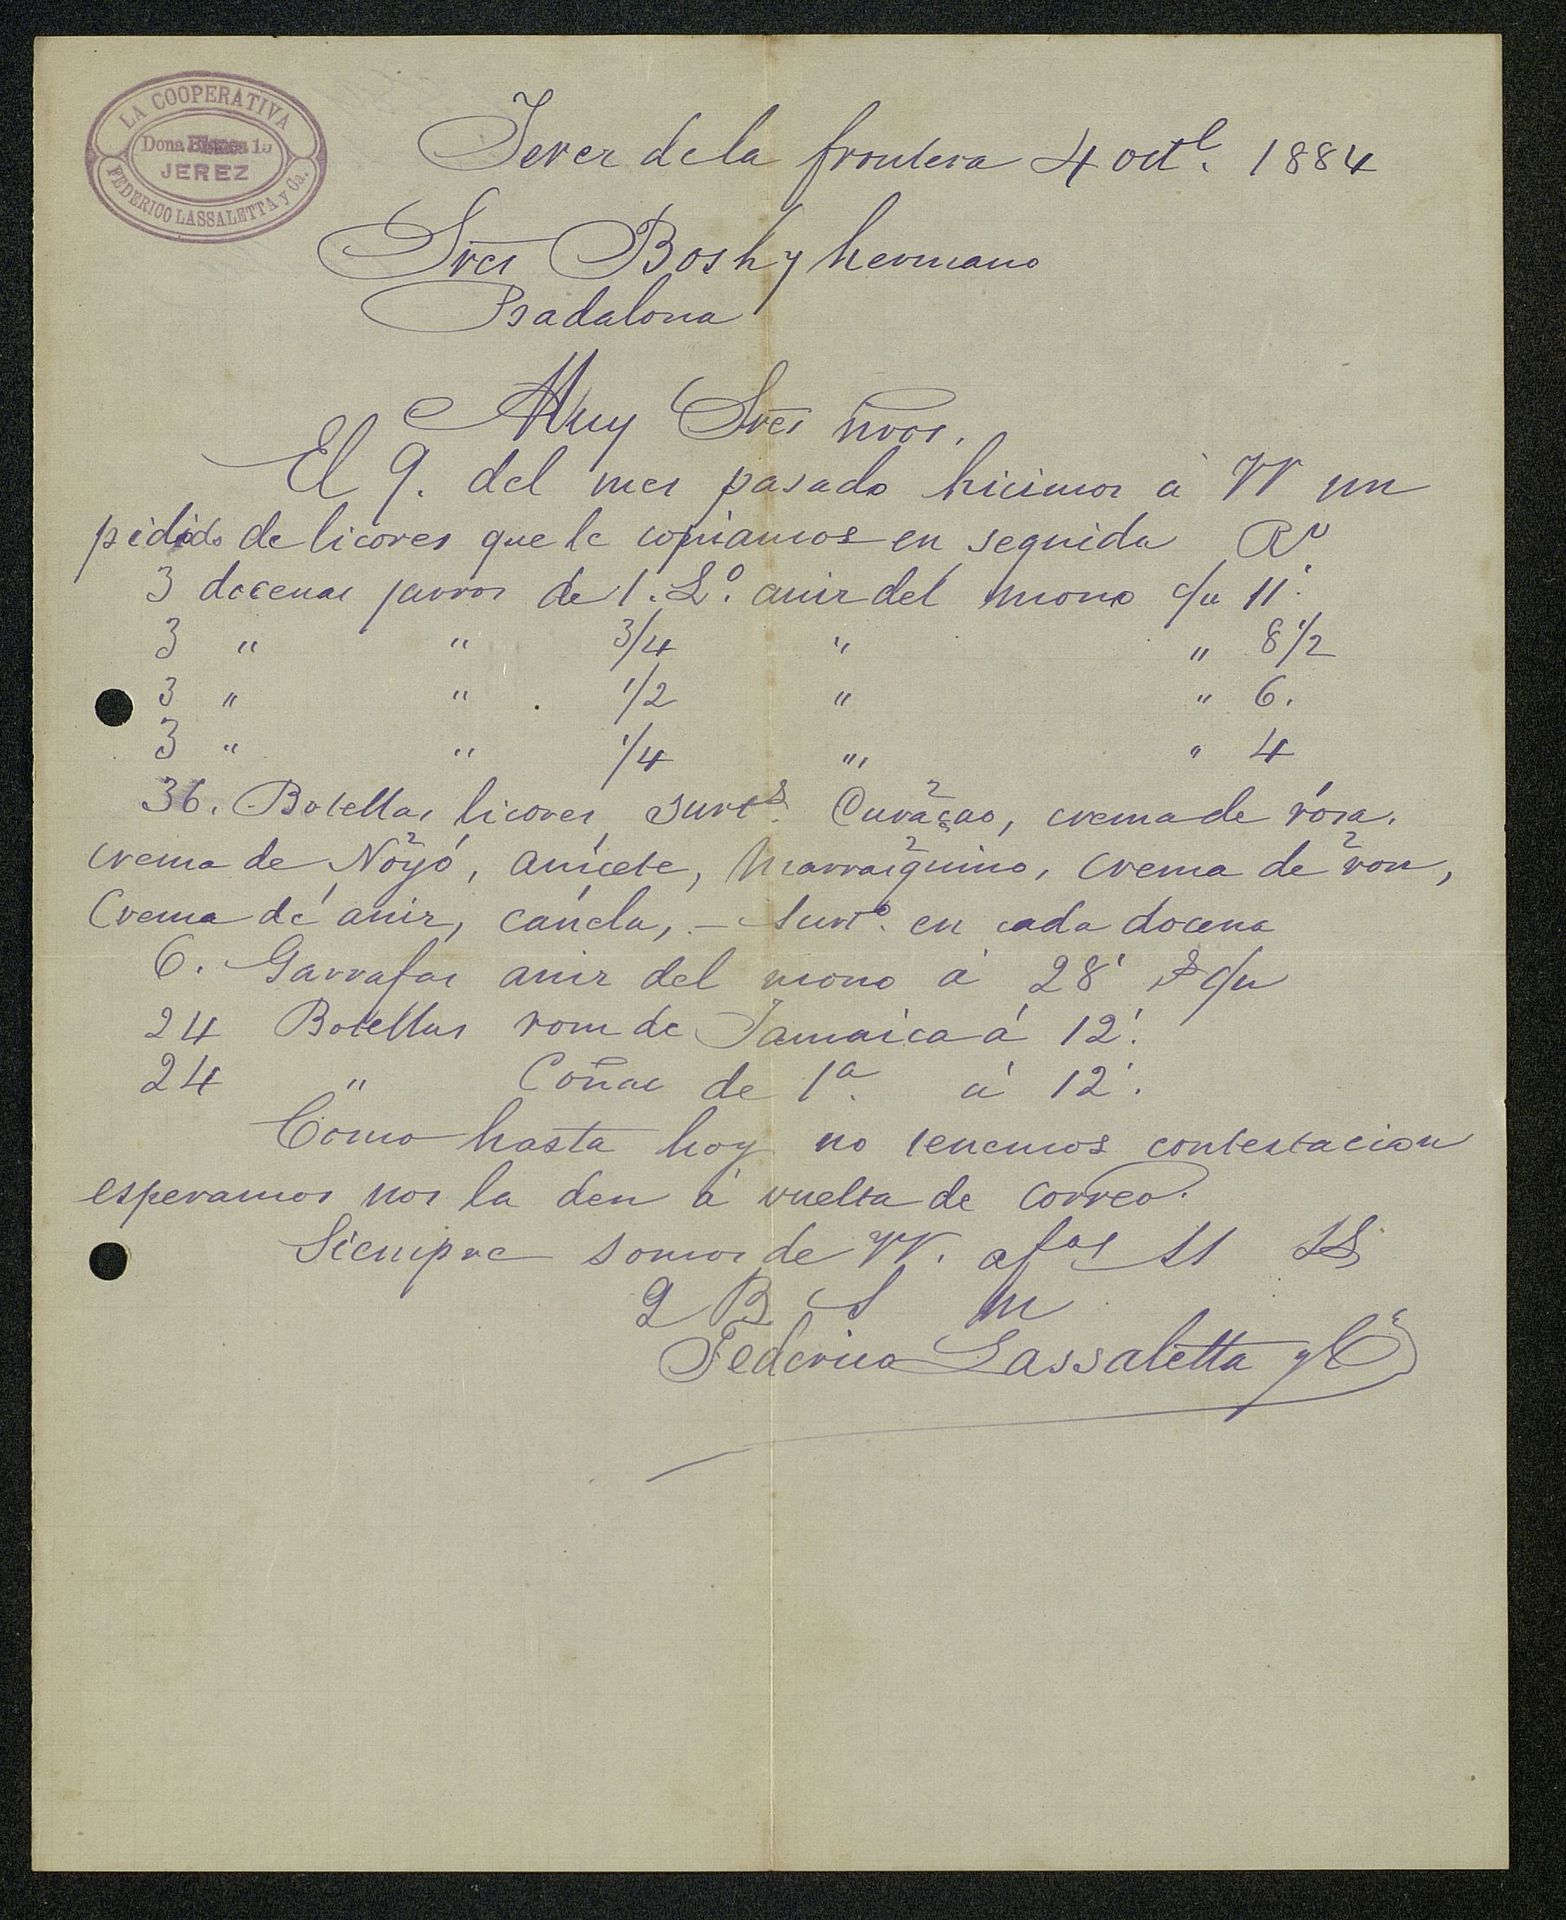 LA COOPERATIVA
Dona Blanca 15
JEREZ
FEDERICO LASSALETTA y Ca.
Jerez de la frontera 4 octe. 1884
Sres Bosh y hermano
Badalona
Muy Sres nros.
El 9. del mes pasado hicimos à VV un
pedido de licores que le copiamos en seguida Rs
3 docenas jarros de 1. Lo. anis del mono c/u 11.
3 " " 3/4 " " 8 1/2
3 " " 1/2 " " 6.
3 " " 1/4 " " 4
36. Botellas licores surts. Curaçao, crema de rosa,
crema de Noyó, anicete, Marrasquino, crema de ron,
Crema de anis, canela, - Surto. en cada docena
6. Garrafas anis del mono á 28 c/u
24 Botellas rom de Jamaica á 12.
24 " Coñac de 1a. á 12.
Como hasta hoy no tenemos contestacion
esperamos nos la den à vuelta de correo.
Siempre somos de VV. afos SS SS
Q B S M
Federico Lassaletta y Ca